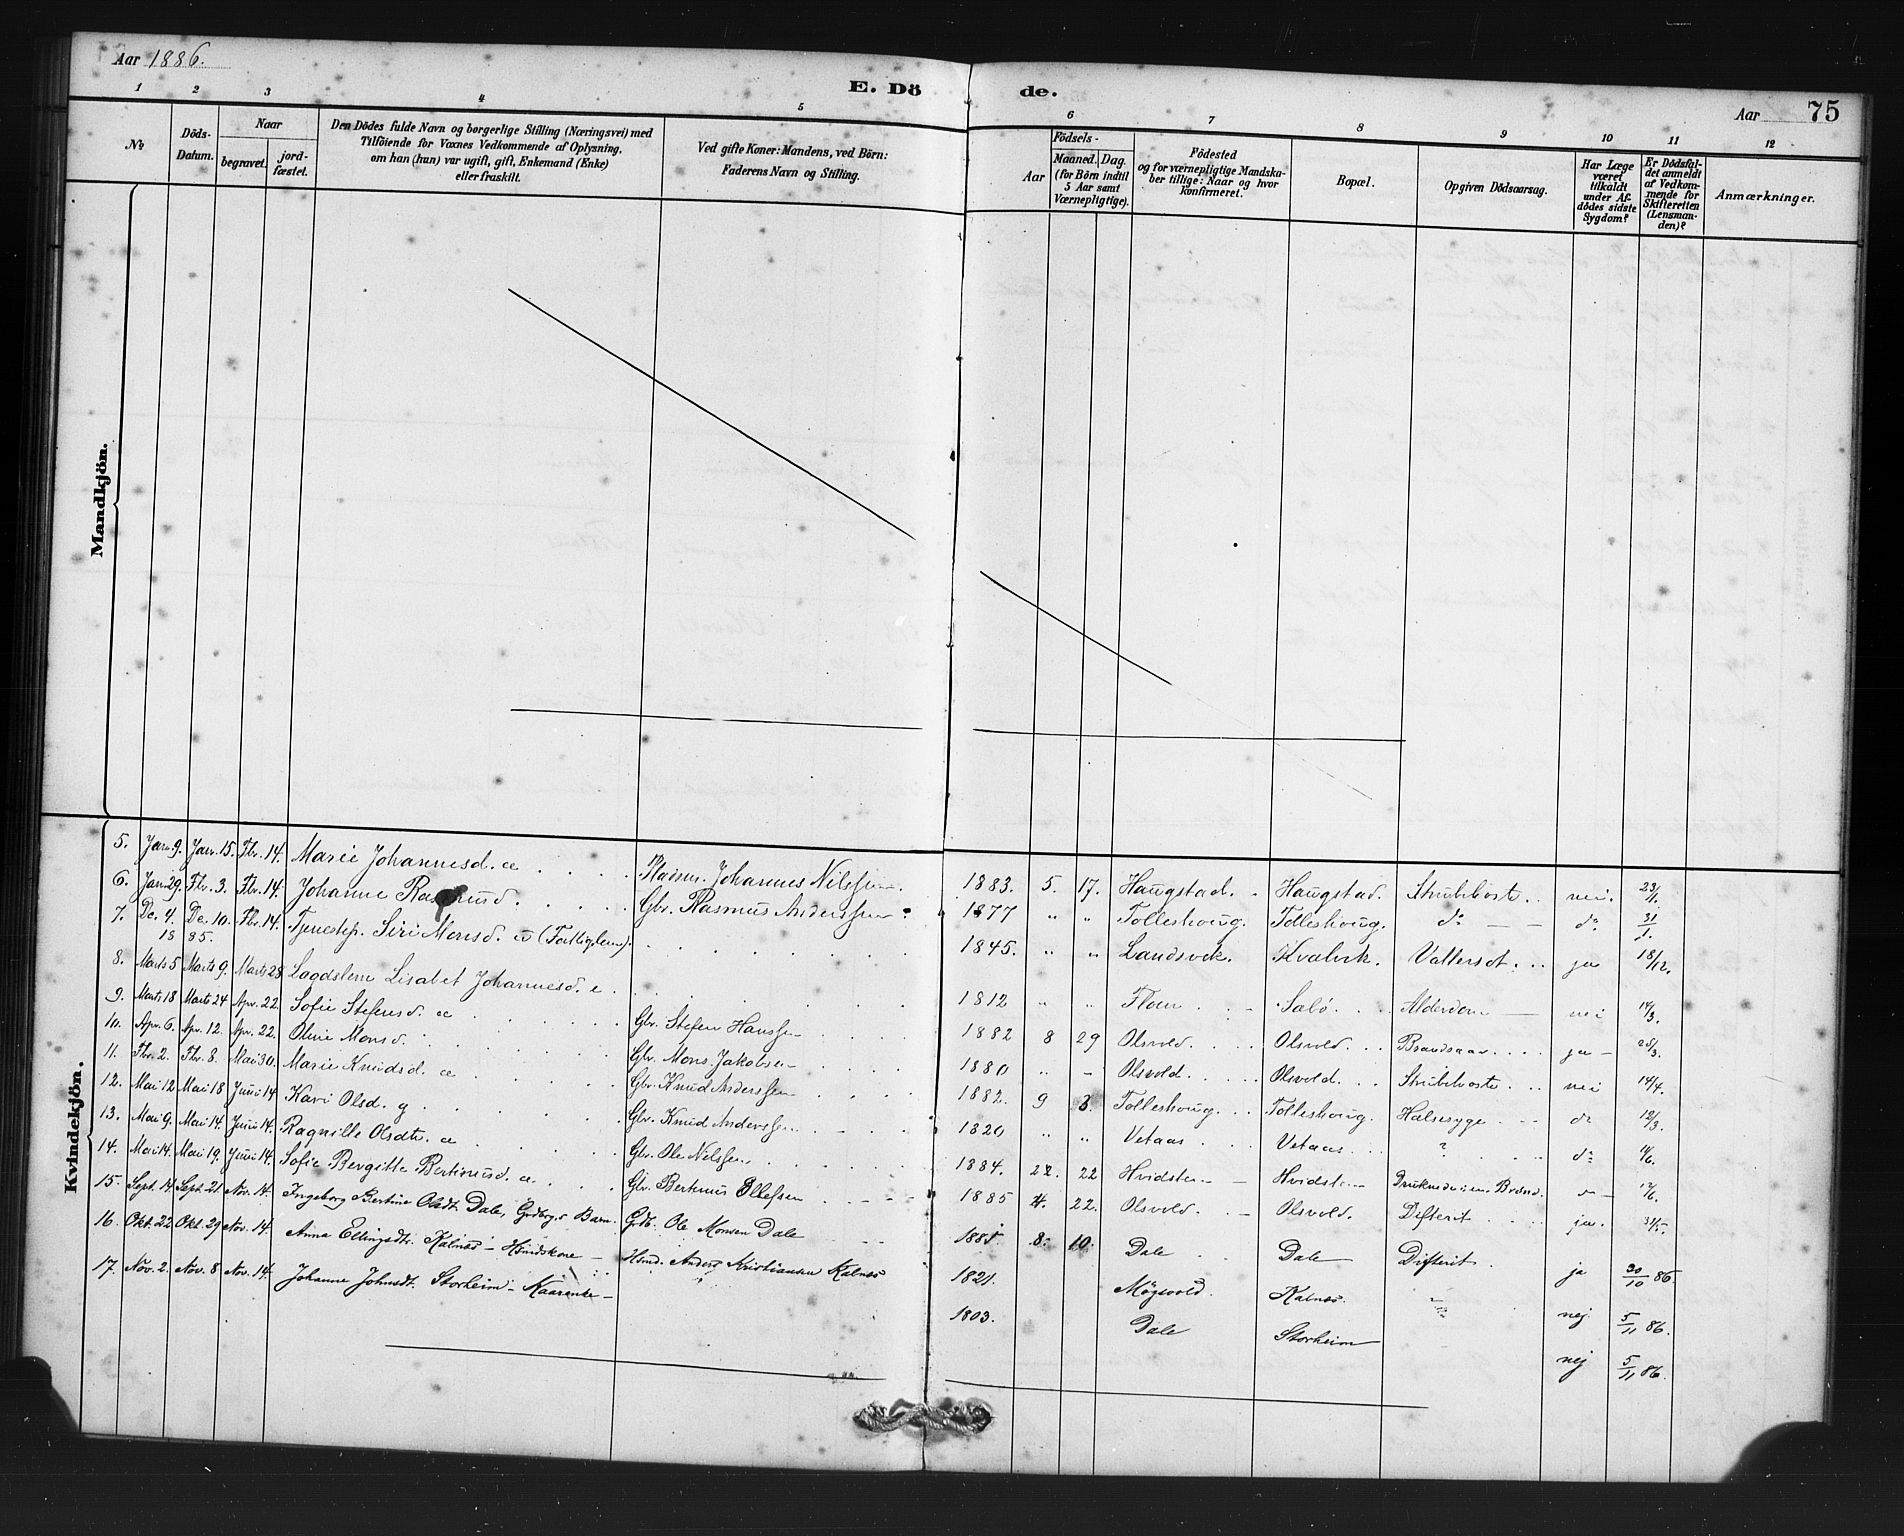 Aar 1886.
E. Döde.
Aar 75
1 2 3 4 5 6 7 8 9 10 11 12
No
Döds-Datum.
Naar
begravet.
jord-fæstet.
Den Dödes fulde Navn og borgerlige Stilling (Næringsvei) med
Tilföiende for Voxnes Vedkommende af Oplysning,
om han (hun) var ugift, gift, Enkemand (Enke)
eller fraskilt.
Ved gifte Koner: Mandens, ved Börn:
Faderens Navn og Stilling.
Födsels-
Aar
Maaned. Dag.
(for Börn indtil
5 Aar samt
Værnepligtige).
Födested
og for værnepligtige Mandska-
ber tillige: Naar og hvor
konfirmeret.
Bopæl.
Opgiven Dödsaarsag.
Har Læge
været
tilkaldt
under Af-
dödes sidste
Sygdom?
Er Dödsfal-
det anmeldt
af Vedkom-
mende for
Skifteretten
(Lensman-
den)?
Anmærkninger.
Mandkjön.
Kvindekjön.
5. Jan. 9. Jan. 15. Fbr. 14. Marie Johannesd. Johannes Nilssen 1883. 5. 17. Haugstad. Haugstad. Strubehoste nei 23/1.
6. Jan. 29. Fbr. 3. Fbr. 14. Johanne Rasmusd. Gbr. Rasmus Anderssen 1877 " " Tolleshoug. Tolleshoug. do do 31/1.
7. De. 4. De. 10. Fbr. 14. Tjenestep. Siri Monsd. 1845. " " Landsvik. Kvalvik. Vattersot. ja 18/12.
18 85.
8. Marts 5 Marts 9. Marts 28 Lagdslem Lisabet Johannesd. 1812 " " Flom Sæbö. Alderdom nei 14/3.
9. Marts 18 Marts 24 Apr. 22. Sofie Stefensd. Gbr. Stefen Hanssen 1882 8 29 Olsvold. Olsvold. ja 25/3.
10. Apr. 6. Apr. 12. Apr. 22. Oline Monsd. Gbr. Mons Jakobsen 1880 " Olsvold. Olsvold. Strubehoste nei 14/4.
11. Fbr. 2. Fbr. 8. Mai 30. Marie Knudsd. Gbr. Knud Anderssen 1882. 9 3. Tolleshoug. Tolleshoug. Halsesyge do 12/3.
12. Mai 12 Mai 18 Juni 14 Kari Olsd. g. Gbr. Knud Anderssen 1820 " " Vetaas Vetaas ? do
13. Mai 9. Mai 14. Juni 14. Ragnille Olsdtr. Gbr. Ole Nilssen 1884. 22 Hvidsten Hvidsten
14. Mai 14. Mai 19. Juni 14. Sofie Bergitte Bertinusd. Gbr. Bertinus Ellefsen 1885 4. 22. Olsvold. Olsvold. Difterit ja.
15. Sept. 14 Sept. 21. Nov. 14. Ingeborg Bertine Olsdt. Dale, Grdbrgs Barn. Grdb. Ole Monsen Dale 1881 8. 10. Dale Dale Difterit ja 30/10 86
16. Okt. 22 Okt. 29 Nov. 14. Anna Ellingsdtr. Kalnæs - Husmdskone - Hsmd. Anders Kristiansen Kalnæs 1821. Mögsvold. Kalnæs. nej 5/11 86.
17. Nov. 2. Nov. 8 Nov. 14. Johanne Johnsdt. Storheim - Kaarenke - 1803. Dale Storheim nej 5/11 86.